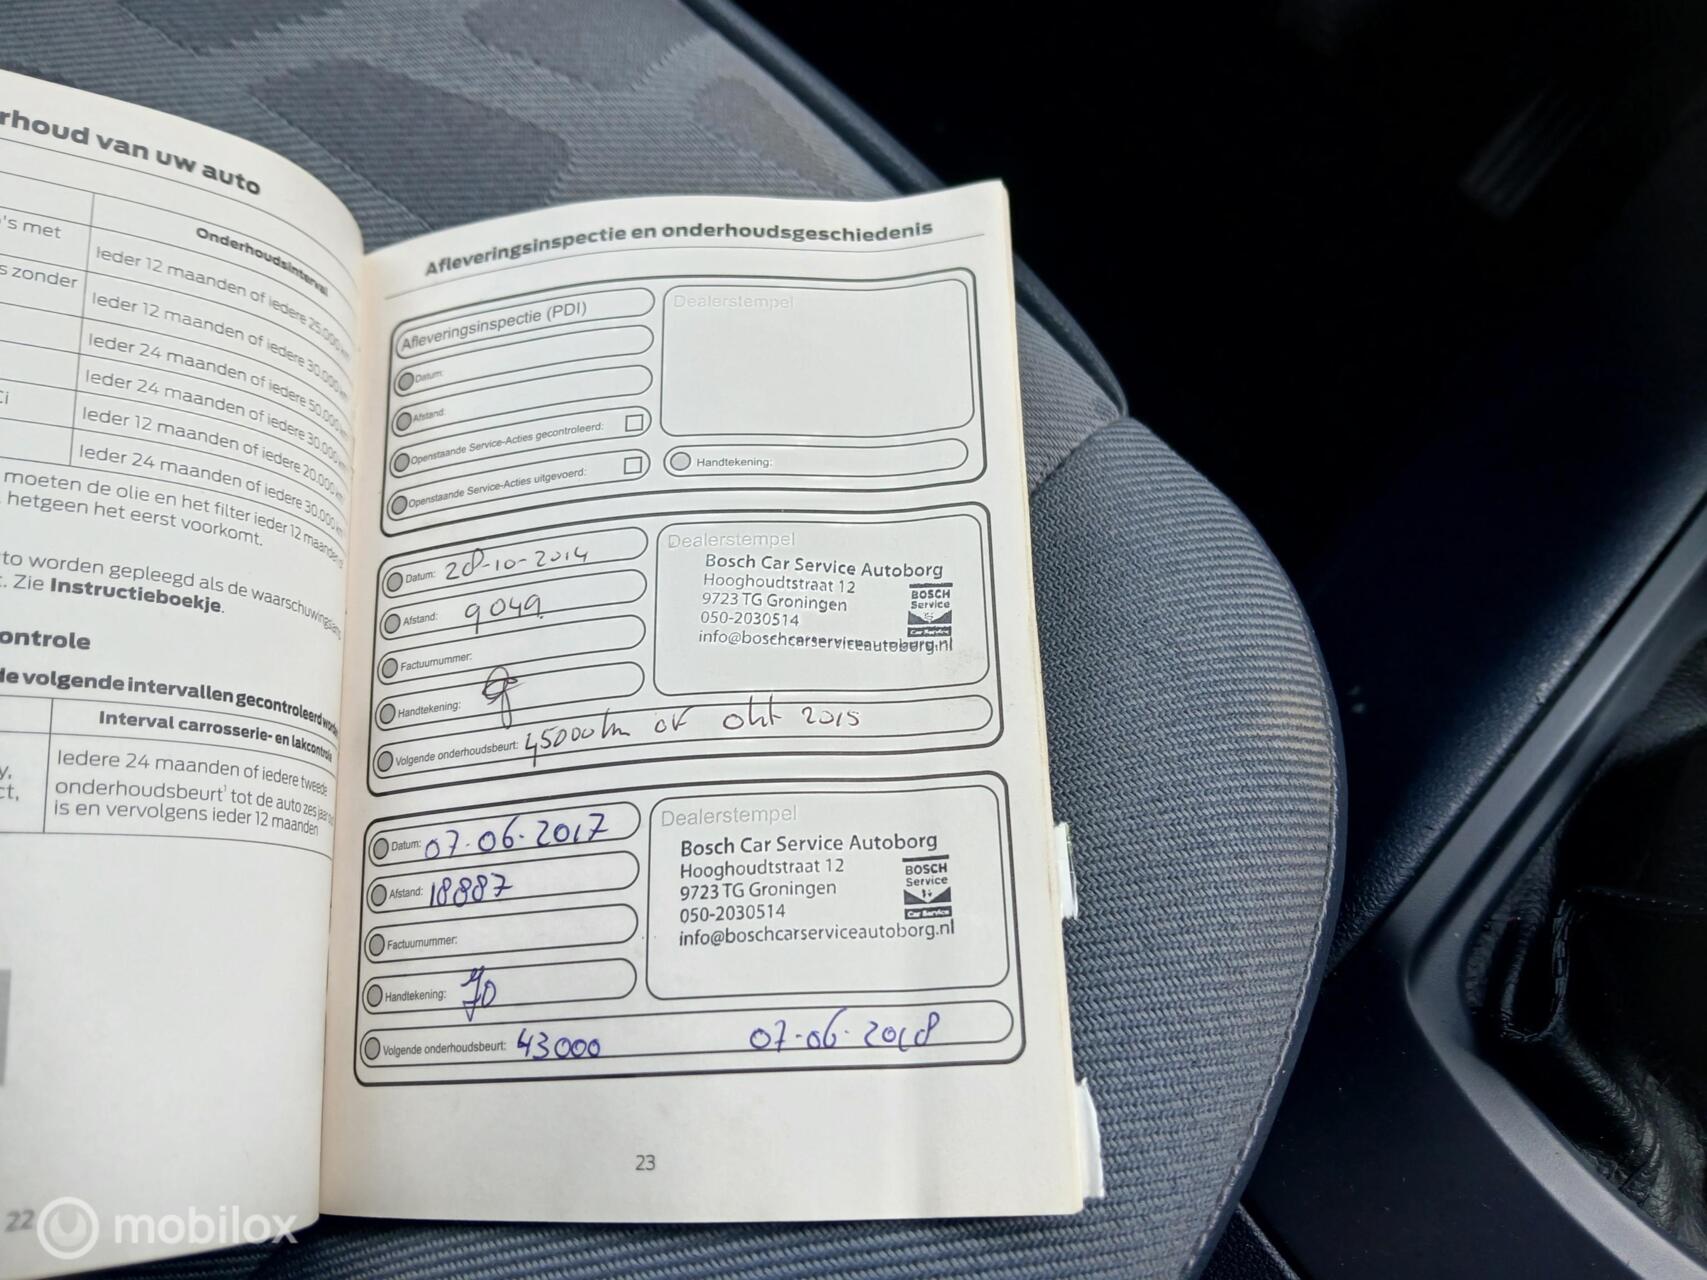 rhoud van uw auto
Onderhoudsinterval
's met
Ieder 12 maanden of iedere 25.000 km
s zonder
Ieder 12 maanden of iedere 30.000 km
Ieder 24 maanden of iedere 50.000 km
Ieder 24 maanden of iedere 30.000 km
Ci
Ieder 12 maanden of iedere 20.000 km
Ieder 24 maanden of iedere 30.000 km
moeten de olie en het filter ieder 12 maanden
hetgeen het eerst voorkomt.
to worden gepleegd als de waarschuwingslamp
t. Zie Instructieboekje.
ontrole
de volgende intervallen gecontroleerd worden
Interval carrosserie- en lakcontrole
Iedere 24 maanden of iedere tweede
y,
onderhoudsbeurt¹ tot de auto zes jaar oud
ct,
is en vervolgens ieder 12 maanden
22
Afleveringsinspectie en onderhoudsgeschiedenis
Afleveringsinspectie (PDI)
Datum:
Afstand:
Openstaande Service-Acties gecontroleerd:
Openstaande Service-Acties uitgevoerd:
Dealerstempel
Handtekening:
Datum: 28-10-2014
Afstand: 9049
Factuurnummer:
Handtekening:
Dealerstempel
Bosch Car Service Autoborg
Hooghoudtstraat 12
9723 TG Groningen
050-2030514
info@boschcarserviceautoborg.nl
BOSCH
Service
Car Service
Volgende onderhoudsbeurt: 45000km of okt 2015
Datum: 07-06-2017
Afstand: 18887
Factuurnummer:
Handtekening:
Dealerstempel
Bosch Car Service Autoborg
Hooghoudtstraat 12
9723 TG Groningen
050-2030514
info@boschcarserviceautoborg.nl
BOSCH
Service
Car Service
Volgende onderhoudsbeurt: 43000 07-06-2018
23
mobilox